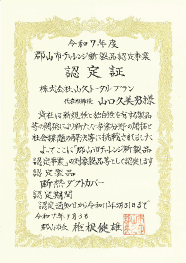 令和7年度
郡山市チャレンジ新製品認定事業
認定証
株式会社山久トータルプラン
代表取締役 山口久美男様
貴社は新規性と独自性を有する製品
等の開発により新たな事業分野の開拓と
社会課題の解決等に挑戦されました
よってここに「郡山市チャレンジ新製品
認定事業」の対象製品等として認定します
認定製品
断熱ダストカバー
認定期間
認定通知日から令和10年3月31日まで
令和7年9月3日
郡山市長 椎根健雄